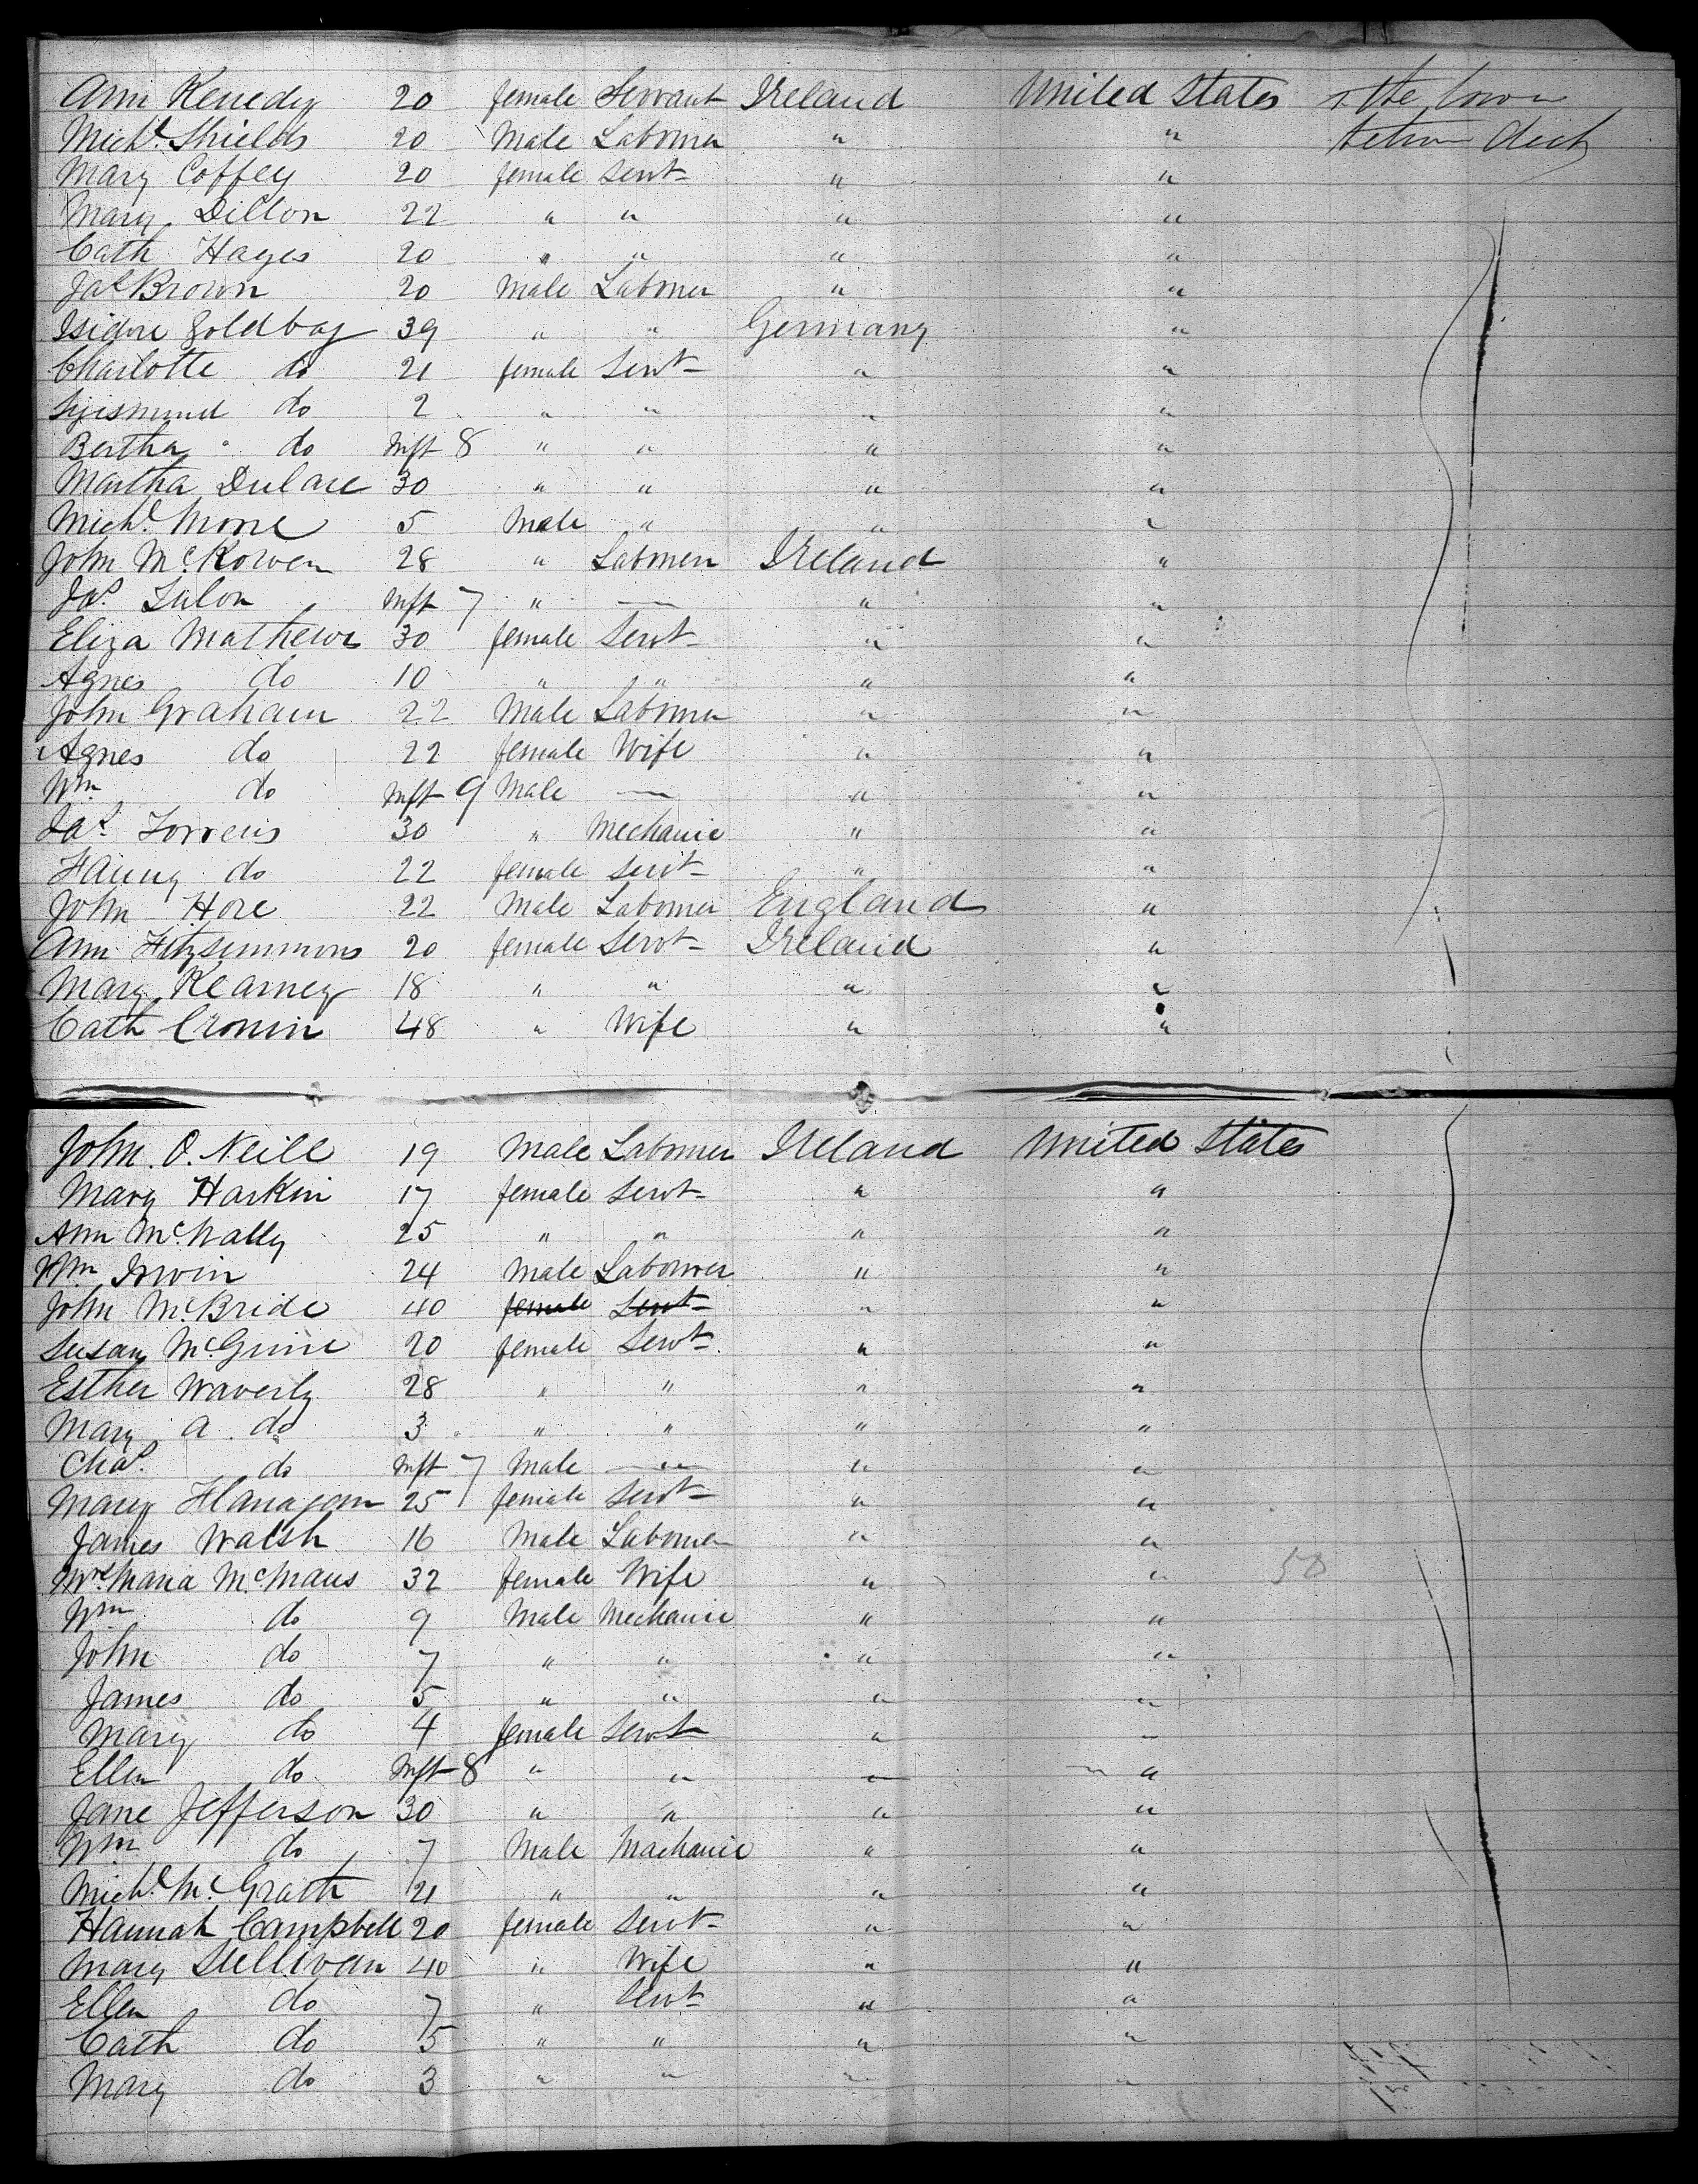 Ann Kenedy 20 female Servant Ireland United States the lower
Michl. Shields 20 Male Labourer " " between deck
Mary Coffey 20 female Servt " "
Mary Dillon 22 " " " "
Cath Hayes 20 " " " "
Jas Brown 20 Male Labourer " "
Isidore Goldbag 39 " " Germany "
Charlotte do 21 female Servt " "
Sigismund do 2 " " " "
Bertha do Inft 8 " " " "
Martha Dulace 30 " " " "
Michl. Moore 5 Male " " "
John McKowen 28 " Labourer Ireland "
Jas. Lulon Inft 7 " — " "
Eliza Mathews 30 female Servt " "
Agnes do 10 " " " "
John Graham 22 Male Labourer " "
Agnes do 22 female Wife " "
Wm do Inft 9 Male — " "
Jas. Torrens 30 " Mechanic " "
Fanny do 22 female Servt " "
John Hore 22 Male Labourer England "
Ann Fitzsimmons 20 female Servt Ireland "
Mary Kearney 18 " " " "
Cath Cronin 48 " Wife " "
John O.Neill 19 Male Labourer Ireland United States
Mary Harkin 17 female Servt " "
Ann McNally 25 " " " "
Wm Irwin 24 Male Labourer " "
John McBride 40 female Servt " "
Susan McGuire 20 female Servt " "
Esther Waverly 28 " " " "
Mary A do 3 " " " "
Chas. do Inft 7 Male — " "
Mary Flanagan 25 female Servt " "
James Walsh 16 Male Labourer " "
Mrs Maria McManus 32 female Wife " " 58
Wm do 9 Male Mechanic " "
John do 7 " " " "
James do 5 " " " "
Mary do 4 female Servt " "
Ellen do Inft 8 " " " "
Jane Jefferson 30 " " " "
Wm do 7 Male Machanic " "
Michl. McGrath 21 " " " "
Hannah Campbell 20 female Servt " "
Mary Sullivan 40 " Wife " "
Ellen do 7 " Servt " "
Cath do 5 " " " "
Mary do 3 " " " "